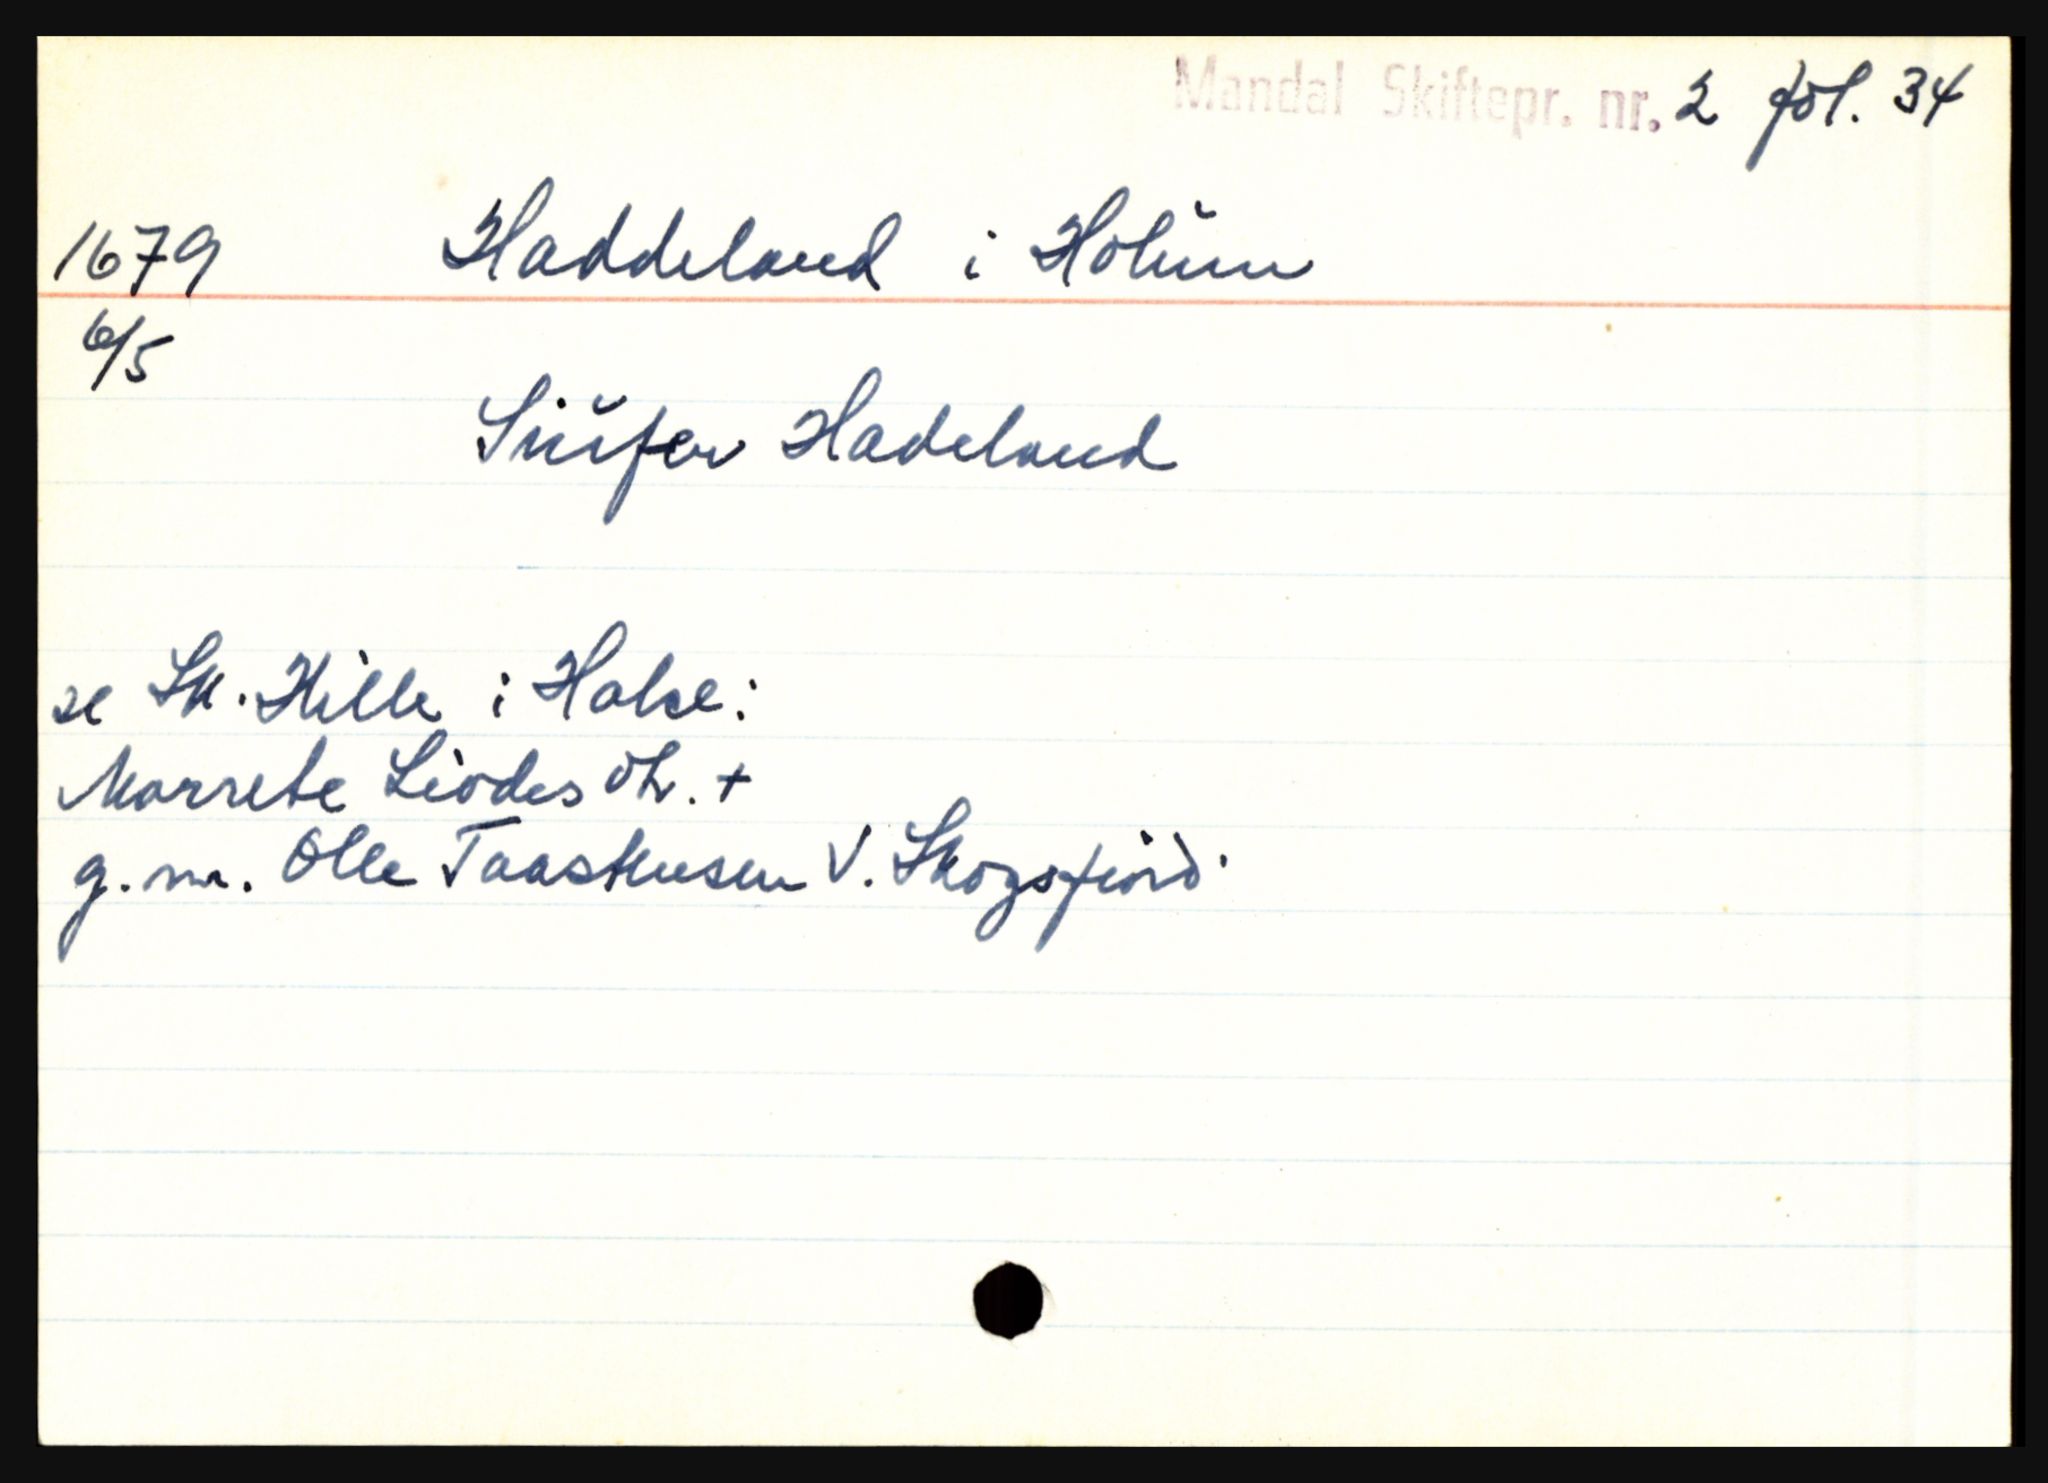 Mandal Skiftepr. nr. 2 fol. 34
1679 Haddeland i Holum
6/5
Siufer Hadeland
se Sk. Hille i Halse:
Marrete Liodes dtr. +
g.m. Olle Taaskeesen V. Skogsfiord.